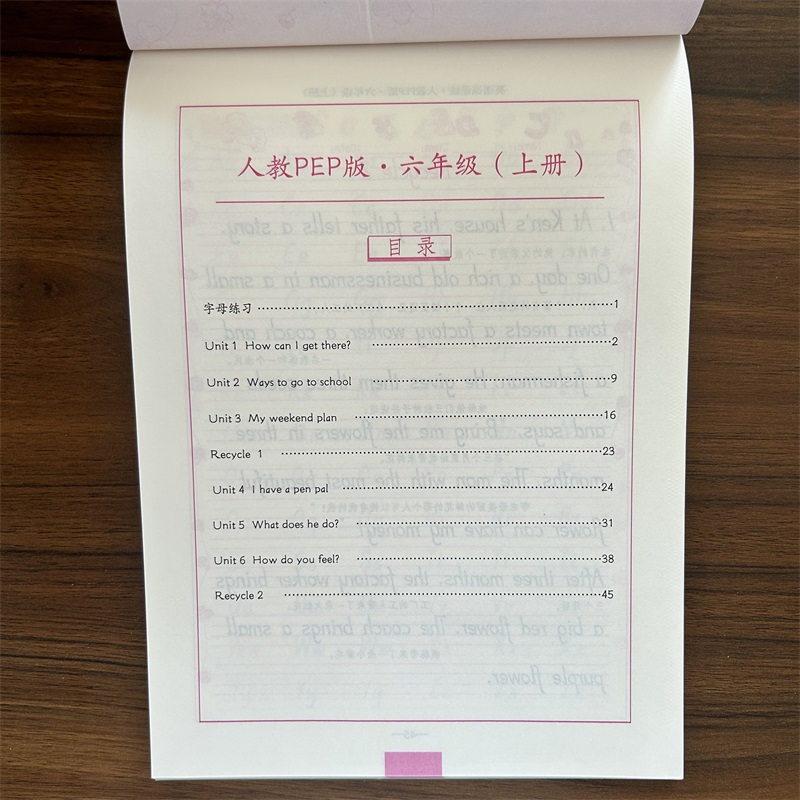 人教PEP版·六年级（上册）
目录
字母练习 1
Unit 1 How can I get there? 2
Unit 2 Ways to go to school 9
Unit 3 My weekend plan 16
Recycle 1 23
Unit 4 I have a pen pal 24
Unit 5 What does he do? 31
Unit 6 How do you feel? 38
Recycle 2 45